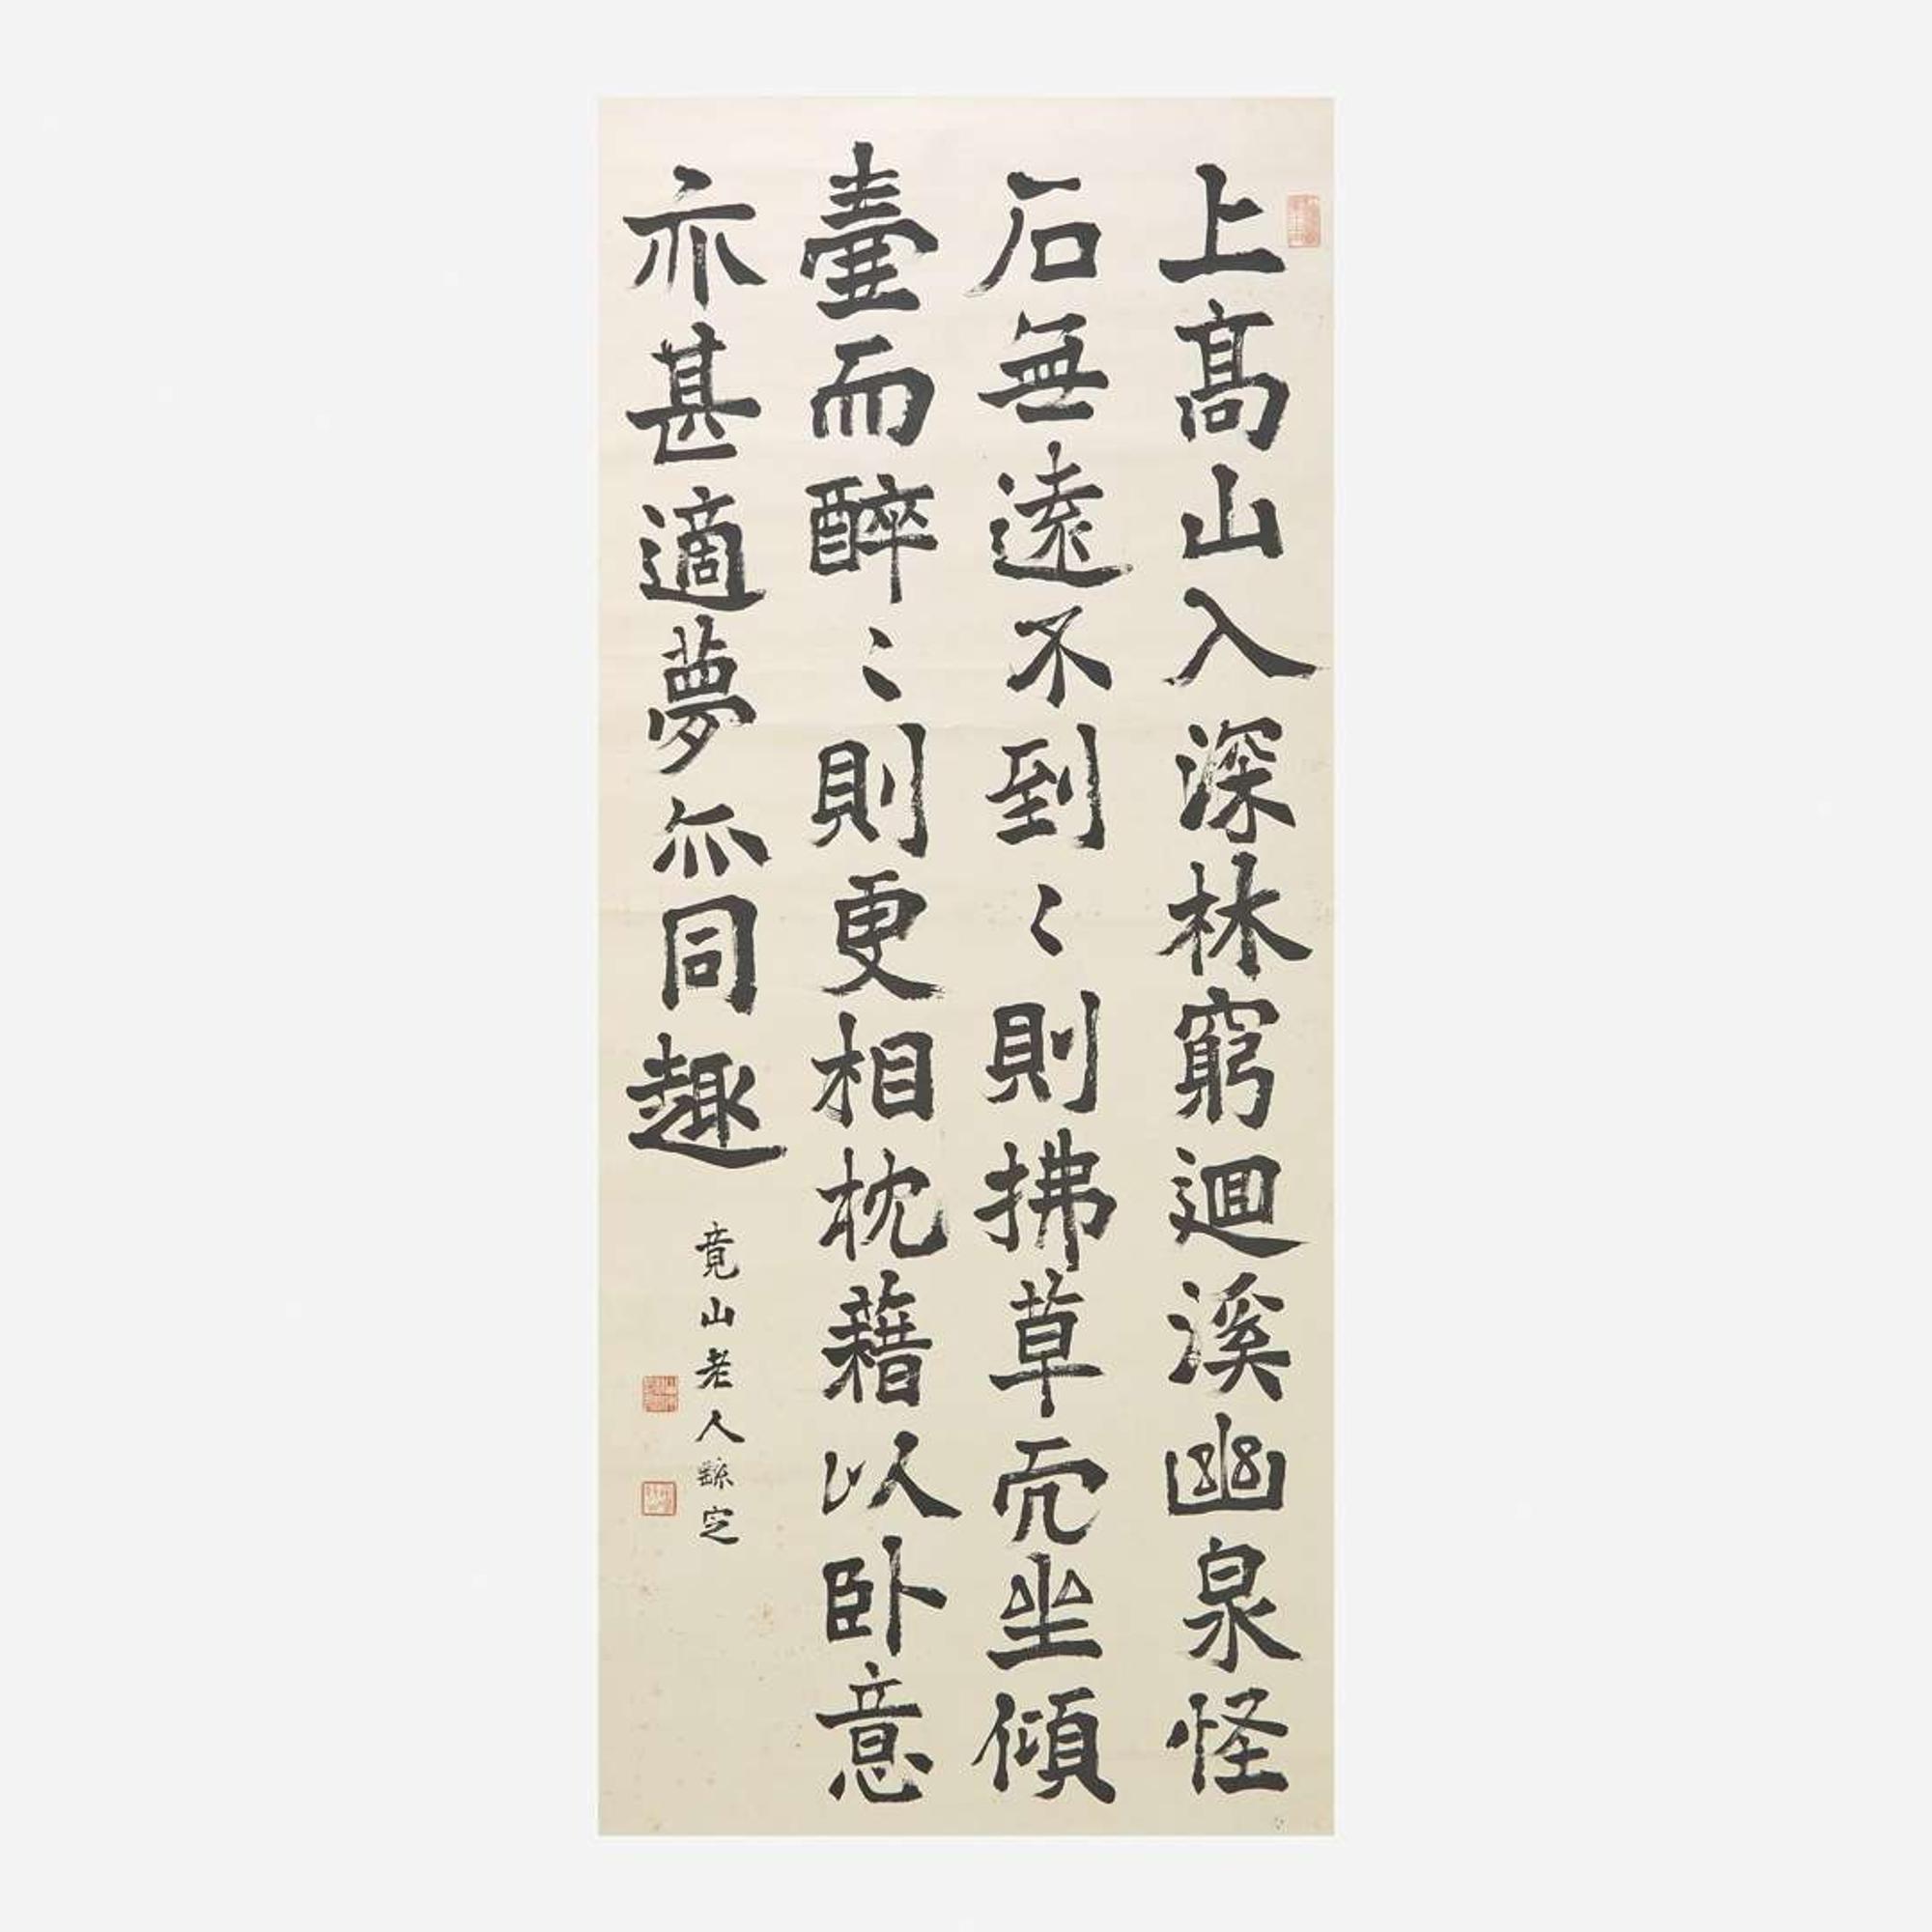 上髙山入深林窮迴溪幽泉怪
石無遠不到〻則拂草而坐傾
壺而醉〻則更相枕藉以卧意
亦甚適夢亦同趣
竟山老人繇定